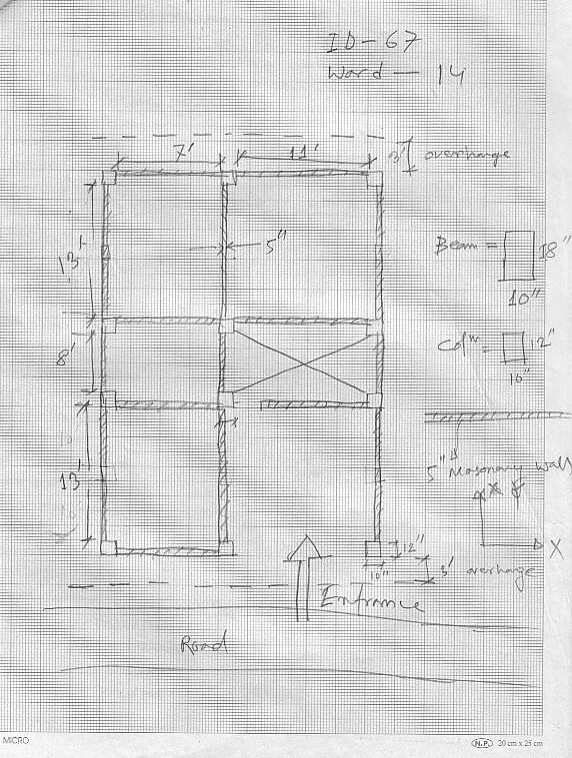 ID-67
Ward - 14
7'
11'
3' overhange
13'
5"
Beam =
18"
10"
8'
Colm =
12"
10"
5" Masonary wall
13'
X
12"
10"
3' overhange
Entrance
Road
MICRO
N.P. 20 cm x 25 cm